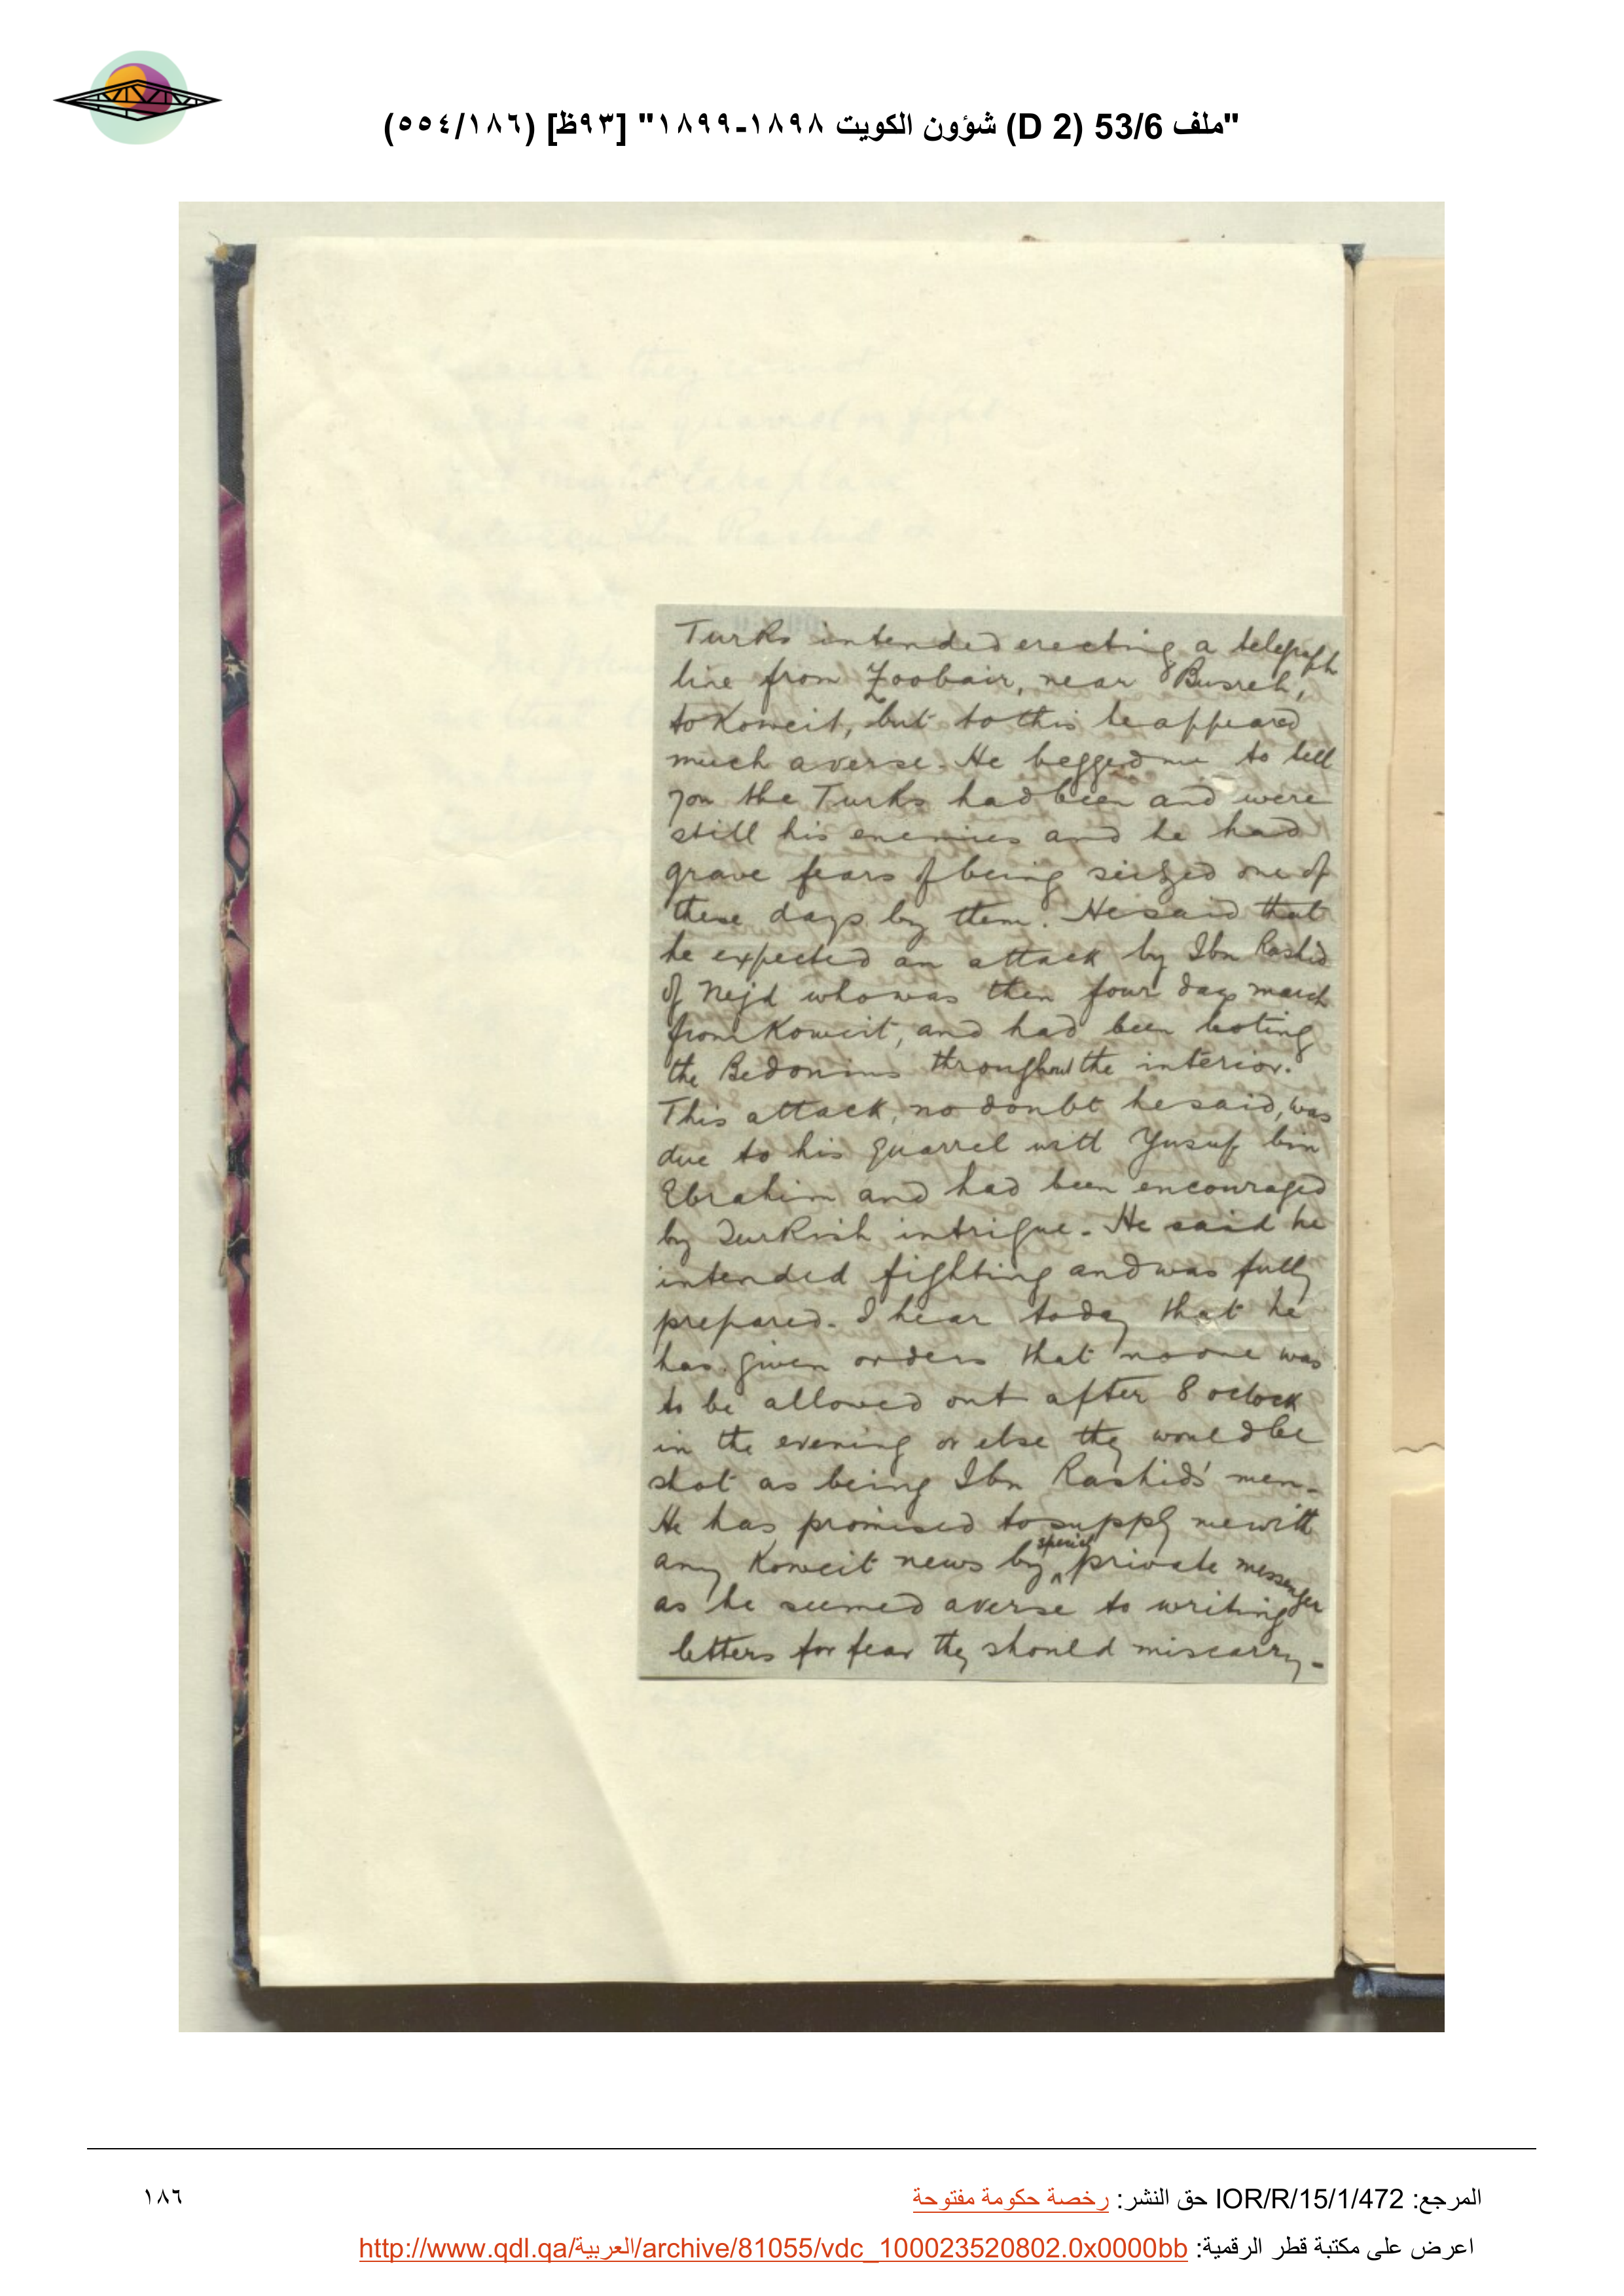 "ملف 53/6 (D 2) شؤون الكويت ١٨٩٨-١٨٩٩" [٩٣ظ] (١٨٦/٥٥٤)
Turks intended erecting a telegraph
line from Zoobair, near Busreh,
to Koweit, but to this he appeared
much averse. He begged me to tell
you the Turks had been and were
still his enemies and he had
grave fears of being seized one of
these days by them. He said that
he expected an attack by Ibn Rashid
of Nejd who was then four days march
from Koweit, and had been looting
the Bedouins throughout the interior.
This attack, no doubt he said, was
due to his quarrel with Yusuf bin
Ebrahim and had been encouraged
by Turkish intrigue. He said he
intended fighting and was fully
prepared. I hear today that he
has given orders that no one was
to be allowed out after 8 oclock
in the evening or else they would be
shot as being Ibn Rashids' men.
He has promised to supply me with
any Koweit news by special private messenger
as he seemed averse to writing
letters for fear they should miscarry.
المرجع: IOR/R/15/1/472 حق النشر: رخصة حكومة مفتوحة
١٨٦
اعرض على مكتبة قطر الرقمية: http://www.qdl.qa/العربية/archive/81055/vdc_100023520802.0x0000bb